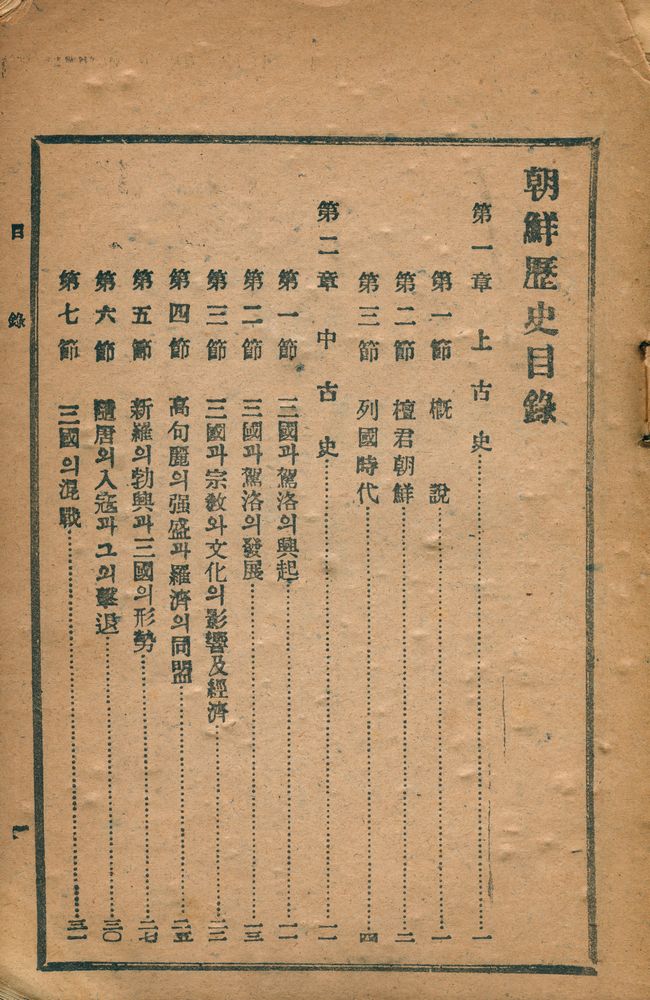 朝鮮歷史目錄
第一章 上古史 一
第一節 槪說 一
第二節 檀君朝鮮 二
第三節 列國時代 四
第二章 中古史 一一
第一節 三國과 駕洛의 興起 一一
第二節 三國과 駕洛의 發展 一三
第三節 三國과 宗敎와 文化의 影響及經濟 二三
第四節 高句麗의 强盛과 羅濟의 同盟 二五
第五節 新羅의 勃興과 三國의 形勢 二七
第六節 隨唐의 入寇과 그의 擊退 三〇
第七節 三國의 混戰 三一
目錄 一